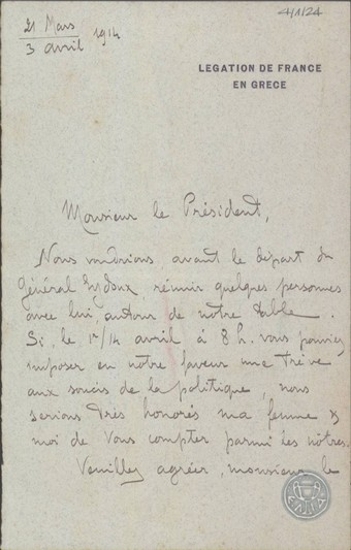 21 Mars
3 avril 1914
4/1/24
LEGATION DE FRANCE
EN GRECE
Monsieur le Président,
Nous voudrions avant le départ du
Général Eydoux, réunir quelques personnes
avec lui, autour de notre table.
Si, le 1er/14 avril à 8h, vous pouviez
imposer en notre faveur une trève
aux soucis de la politique, nous
serions très honorés ma femme &
moi de Vous compter parmi les nôtres.
Veuillez agréer, monsieur le